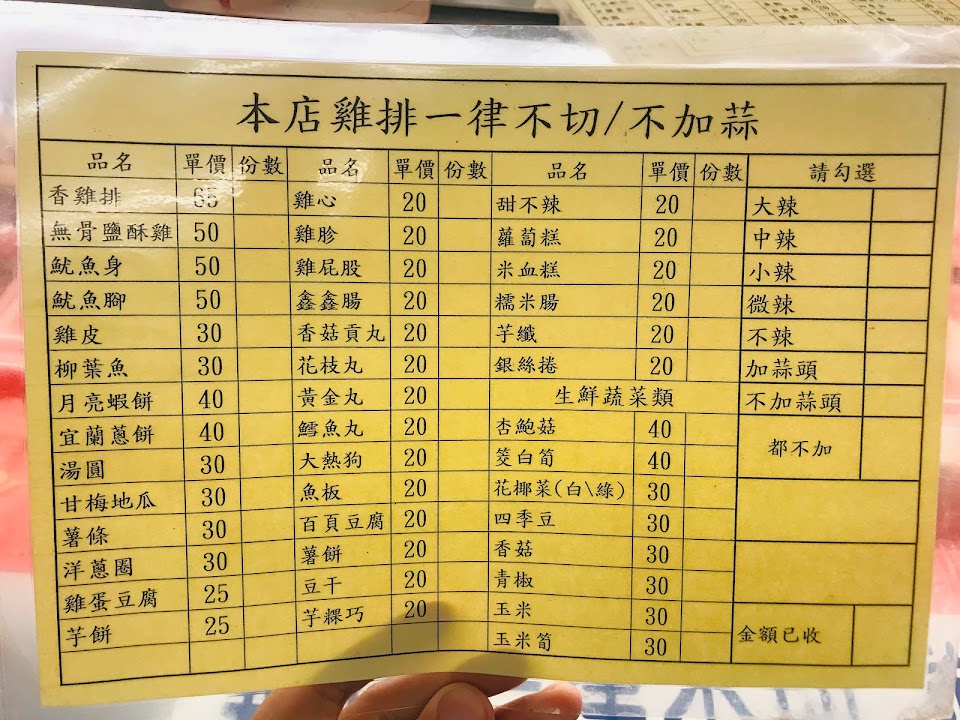 本店雞排一律不切/不加蒜
品名 單價 份數 品名 單價 份數 品名 單價 份數 請勾選
香雞排 65 雞心 20 甜不辣 20 大辣
無骨鹽酥雞 50 雞胗 20 蘿蔔糕 20 中辣
魷魚身 50 雞屁股 20 米血糕 20 小辣
魷魚腳 50 鑫鑫腸 20 糯米腸 20 微辣
雞皮 30 香菇貢丸 20 芋籤 20 不辣
柳葉魚 30 花枝丸 20 銀絲捲 20 加蒜頭
月亮蝦餅 40 黃金丸 20 生鮮蔬菜類 不加蒜頭
宜蘭蔥餅 40 鱈魚丸 20 杏鮑菇 40 都不加
湯圓 30 大熱狗 20 筊白筍 40
甘梅地瓜 30 魚板 20 花椰菜(白\綠) 30
薯條 30 百頁豆腐 20 四季豆 30
洋蔥圈 30 薯餅 20 香菇 30
雞蛋豆腐 25 豆干 20 青椒 30
芋餅 25 芋粿巧 20 玉米 30 金額已收
玉米筍 30